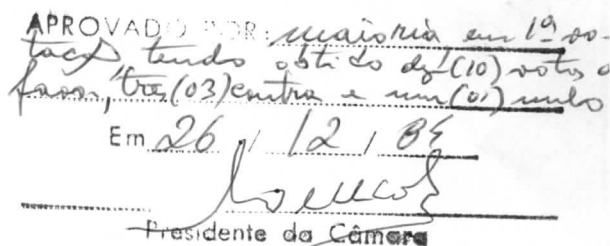 APROVADO POR: maioria, em 1ª vo-
tação tendo obtido dez (10) votos a
favor, três (03) contra e um (01) nulo
Em 26 / 12 / 84
Presidente da Câmara